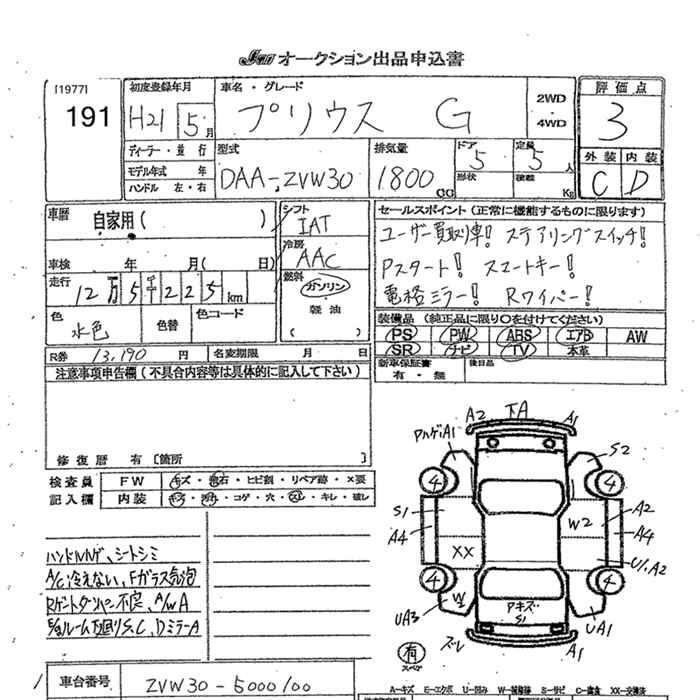 JU オークション出品申込書
[1977]
191
初度登録年月
H21 5月
車名・グレード
プリウス G
2WD
・
4WD
評価点
3
ディーラー・並行
モデル年式 年
ハンドル 左・右
型式
DAA-ZVW30
排気量
1800 CC
ドア
5
形状
定員
5人
積載
Kg
外装 内装
C D
車歴
自家用( )
車検 年 月( 日)
走行
12万5千225km
色
水色
色替
色コード
シフト
IAT
冷房
AAC
燃料
ガソリン
軽油
( )
セールスポイント(正常に機能するものに限ります)
ユーザー買取り車! ステアリングスイッチ!
Pスタート! スマートキー!
電格ミラー! Rワイパー!
装備品(純正品に限り○を付けてください)
PS PW ABS エアB AW
SR ナビ TV 本革
R券 13,190円
名変期限 月 日
新車保証書
有・無
後日品
注意事項申告欄(不具合内容等は具体的に記入して下さい)
修復歴 有〔箇所 〕
検査員 FW キズ・飛石・ヒビ割・リペア跡・×要
記入欄 内装 キズ・汚れ・コゲ・穴・スレ・キレ・破レ
ハンドルハゲ、シートシミ
A/C冷えない、Fガラス気泡
Rゲートダンパー不良、A/W A
ルーム S.C、DミラーA
A2 下A A1
ハゲA1
S2
4 4
S1
A4
W2
A2
A4
XX
U1.A2
4 4
W
UA3
Pキズ
S1
UA1
有
スペア
ズレ
A1
車台番号
ZVW30-5000100
A-キズ E-エクボ U-凹み W-補修跡 S-サビ C-腐食 XX-交換済